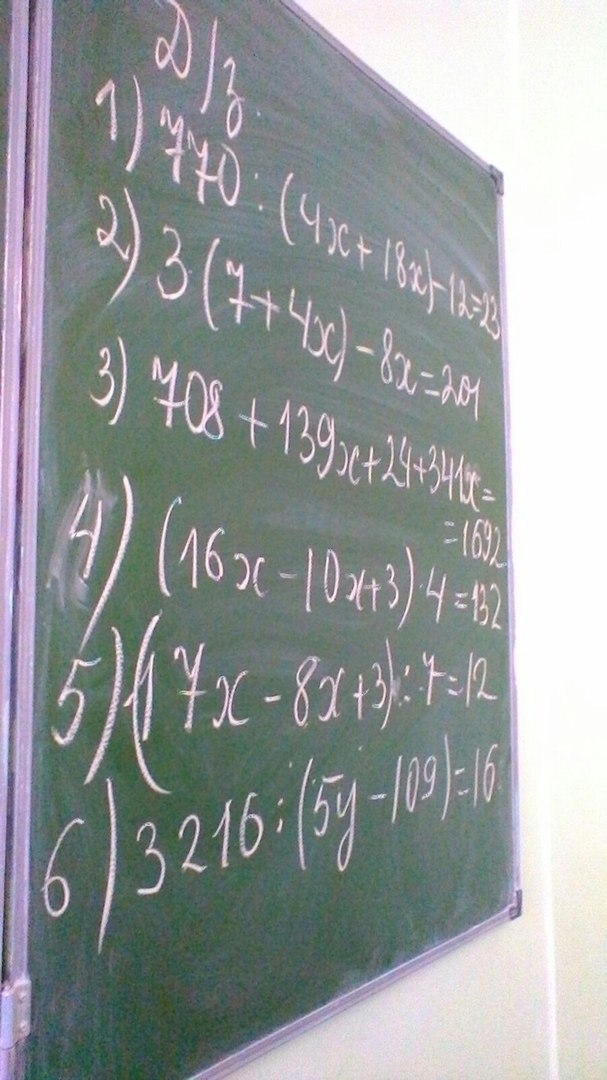 Д/з.
1) 770 : (4x + 18x) - 12 = 23
2) 3 (7 + 4x) - 8x = 201
3) 708 + 139x + 24 + 341x =
= 1692
4) (16x - 10x + 3) · 4 = 132
5) (17x - 8x + 3) : 7 = 12
6) 3216 : (5y - 109) = 16